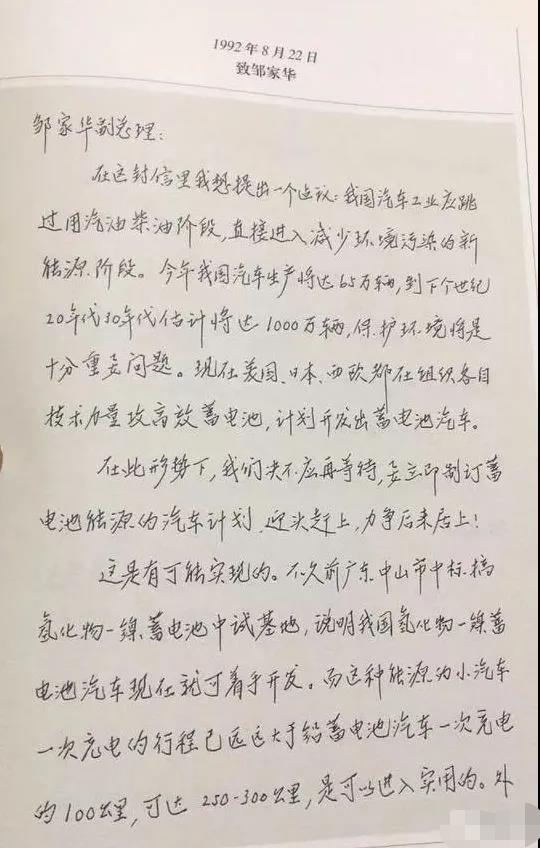 1992年8月22日
致邹家华
邹家华副总理：
在这封信里我想提出一个建议：我国汽车工业应跳
过用汽油柴油阶段，直接进入减少环境污染的新
能源阶段。今年我国汽车生产将达65万辆，到下个世纪
20年代30年代估计将达1000万辆，保护环境将是
十分重要问题。现在美国、日本、西欧都在组织各自
技术力量攻高效蓄电池，计划开发出蓄电池汽车。
在此形势下，我们决不应再等待，要立即制订蓄
电池能源的汽车计划，迎头赶上，力争后来居上！
这是有可能实现的。不久前广东中山市中标搞
氢化物—镍蓄电池中试基地，说明我国氢化物—镍蓄
电池汽车现在就可着手开发。而这种能源的小汽车
一次充电的行程已远远大于铅蓄电池汽车一次充电
的100公里，可达250-300公里，是可以进入实用的。外